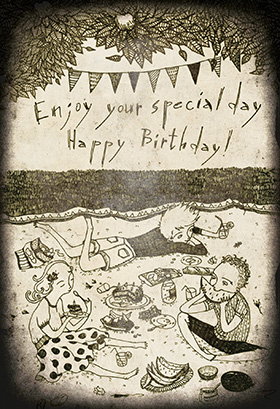 Enjoy your special day
Happy Birthday!